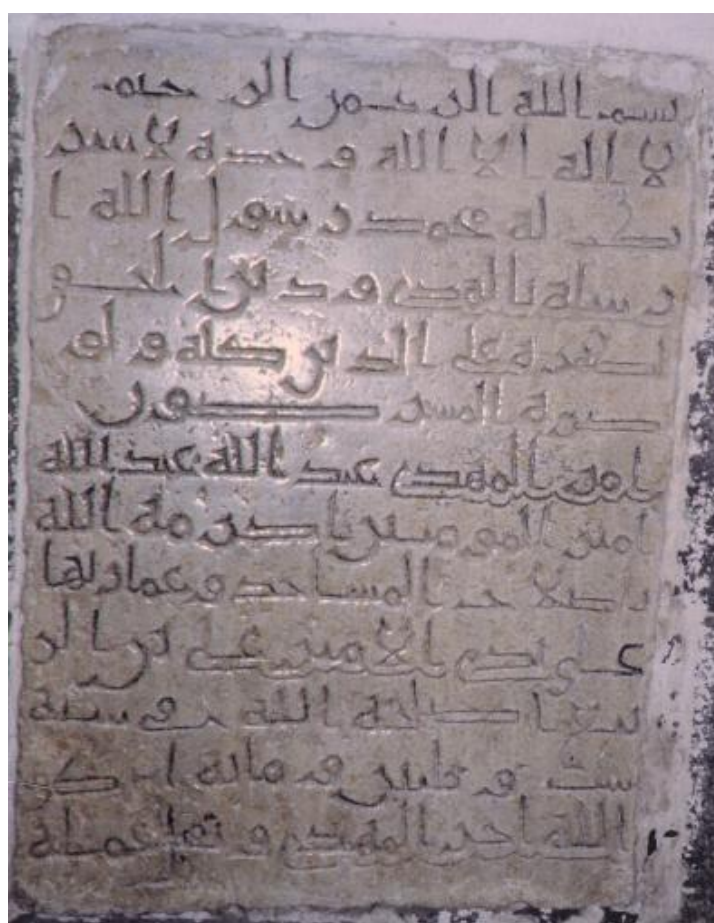 بسم الله الرحمن الرحيم
لا اله الا الله وحده لا شر
يك له محمد رسول الله ا
رسله بالهدى ودين الحق
ليظهره على الدين كله ولو
كره المشركون
امر المهدي عبد الله عبد الله
امير المومنين اكرمه الله
باصلاح المساجد وعمارتها
على يدي الامير علي بن الر
بيع اصلحه الله في سنة
ست وثلثين ومائة
الله اجر المهدي وتقبل عمله